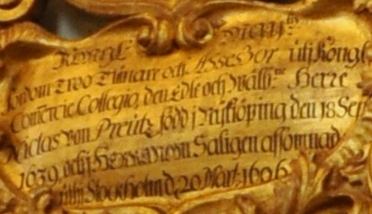 Kongl. May:tz
fordom Troo Tienare och Assessor uti Kongl.
Comercie Collegio, den Edle och Wälb:ne Herre
Niclas von Preutz född i Nyköping den 18 Sep
1639. och i Herranom Saligen afsomnad
uthi Stockholm d. 20 Mart. 1696